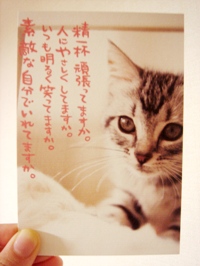 精一杯 頑張ってますか。
人にやさしくしてますか。
いつも明るく笑ってますか。
素敵な自分でいれてますか。